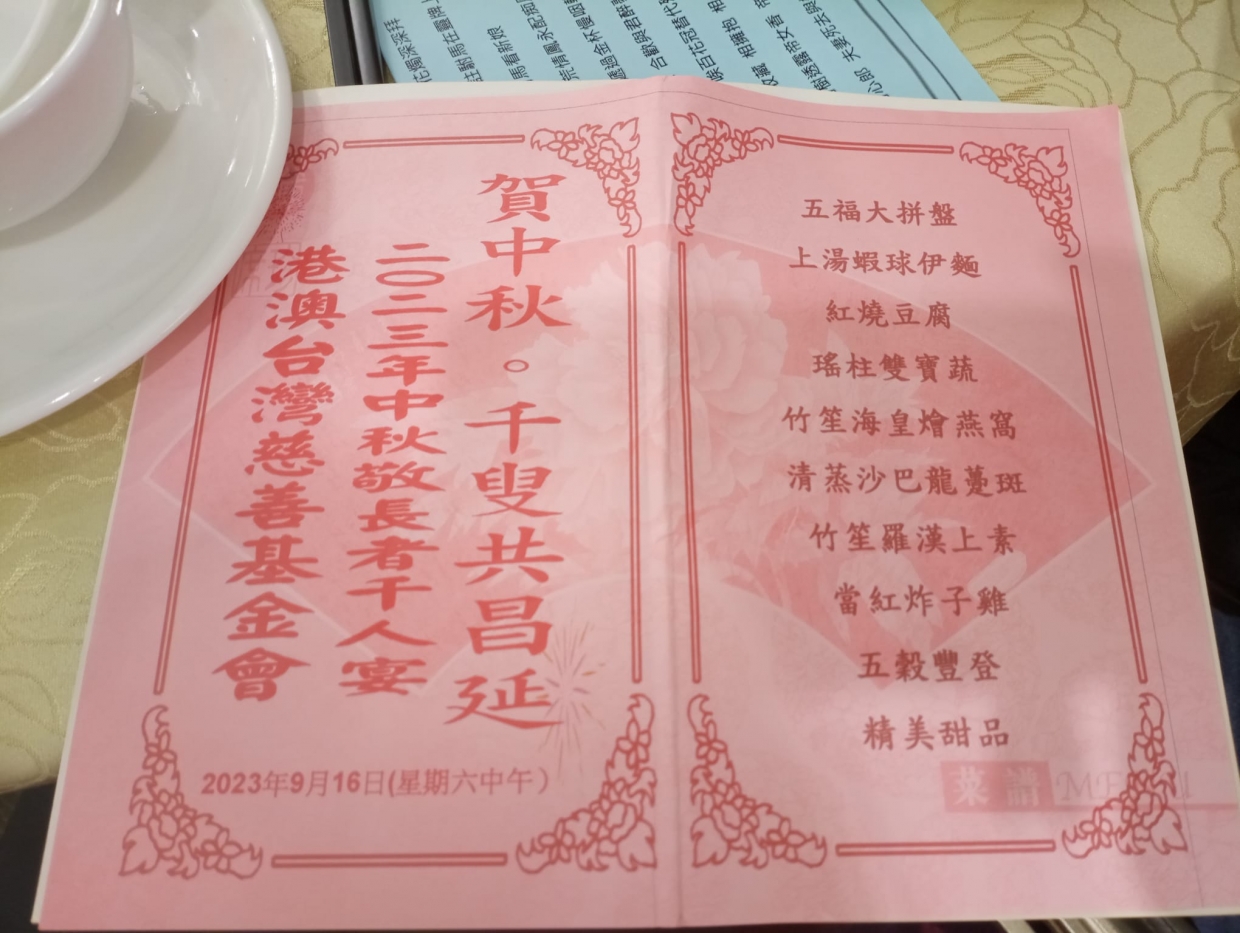 賀中秋。千叟共昌延
二〇二三年中秋敬長者千人宴
港澳台灣慈善基金會
2023年9月16日(星期六中午)
五福大拼盤
上湯蝦球伊麵
紅燒豆腐
瑤柱雙寶蔬
竹笙海皇燴燕窩
清蒸沙巴龍躉斑
竹笙羅漢上素
當紅炸子雞
五穀豐登
精美甜品
菜譜 MENU
馬看新娘